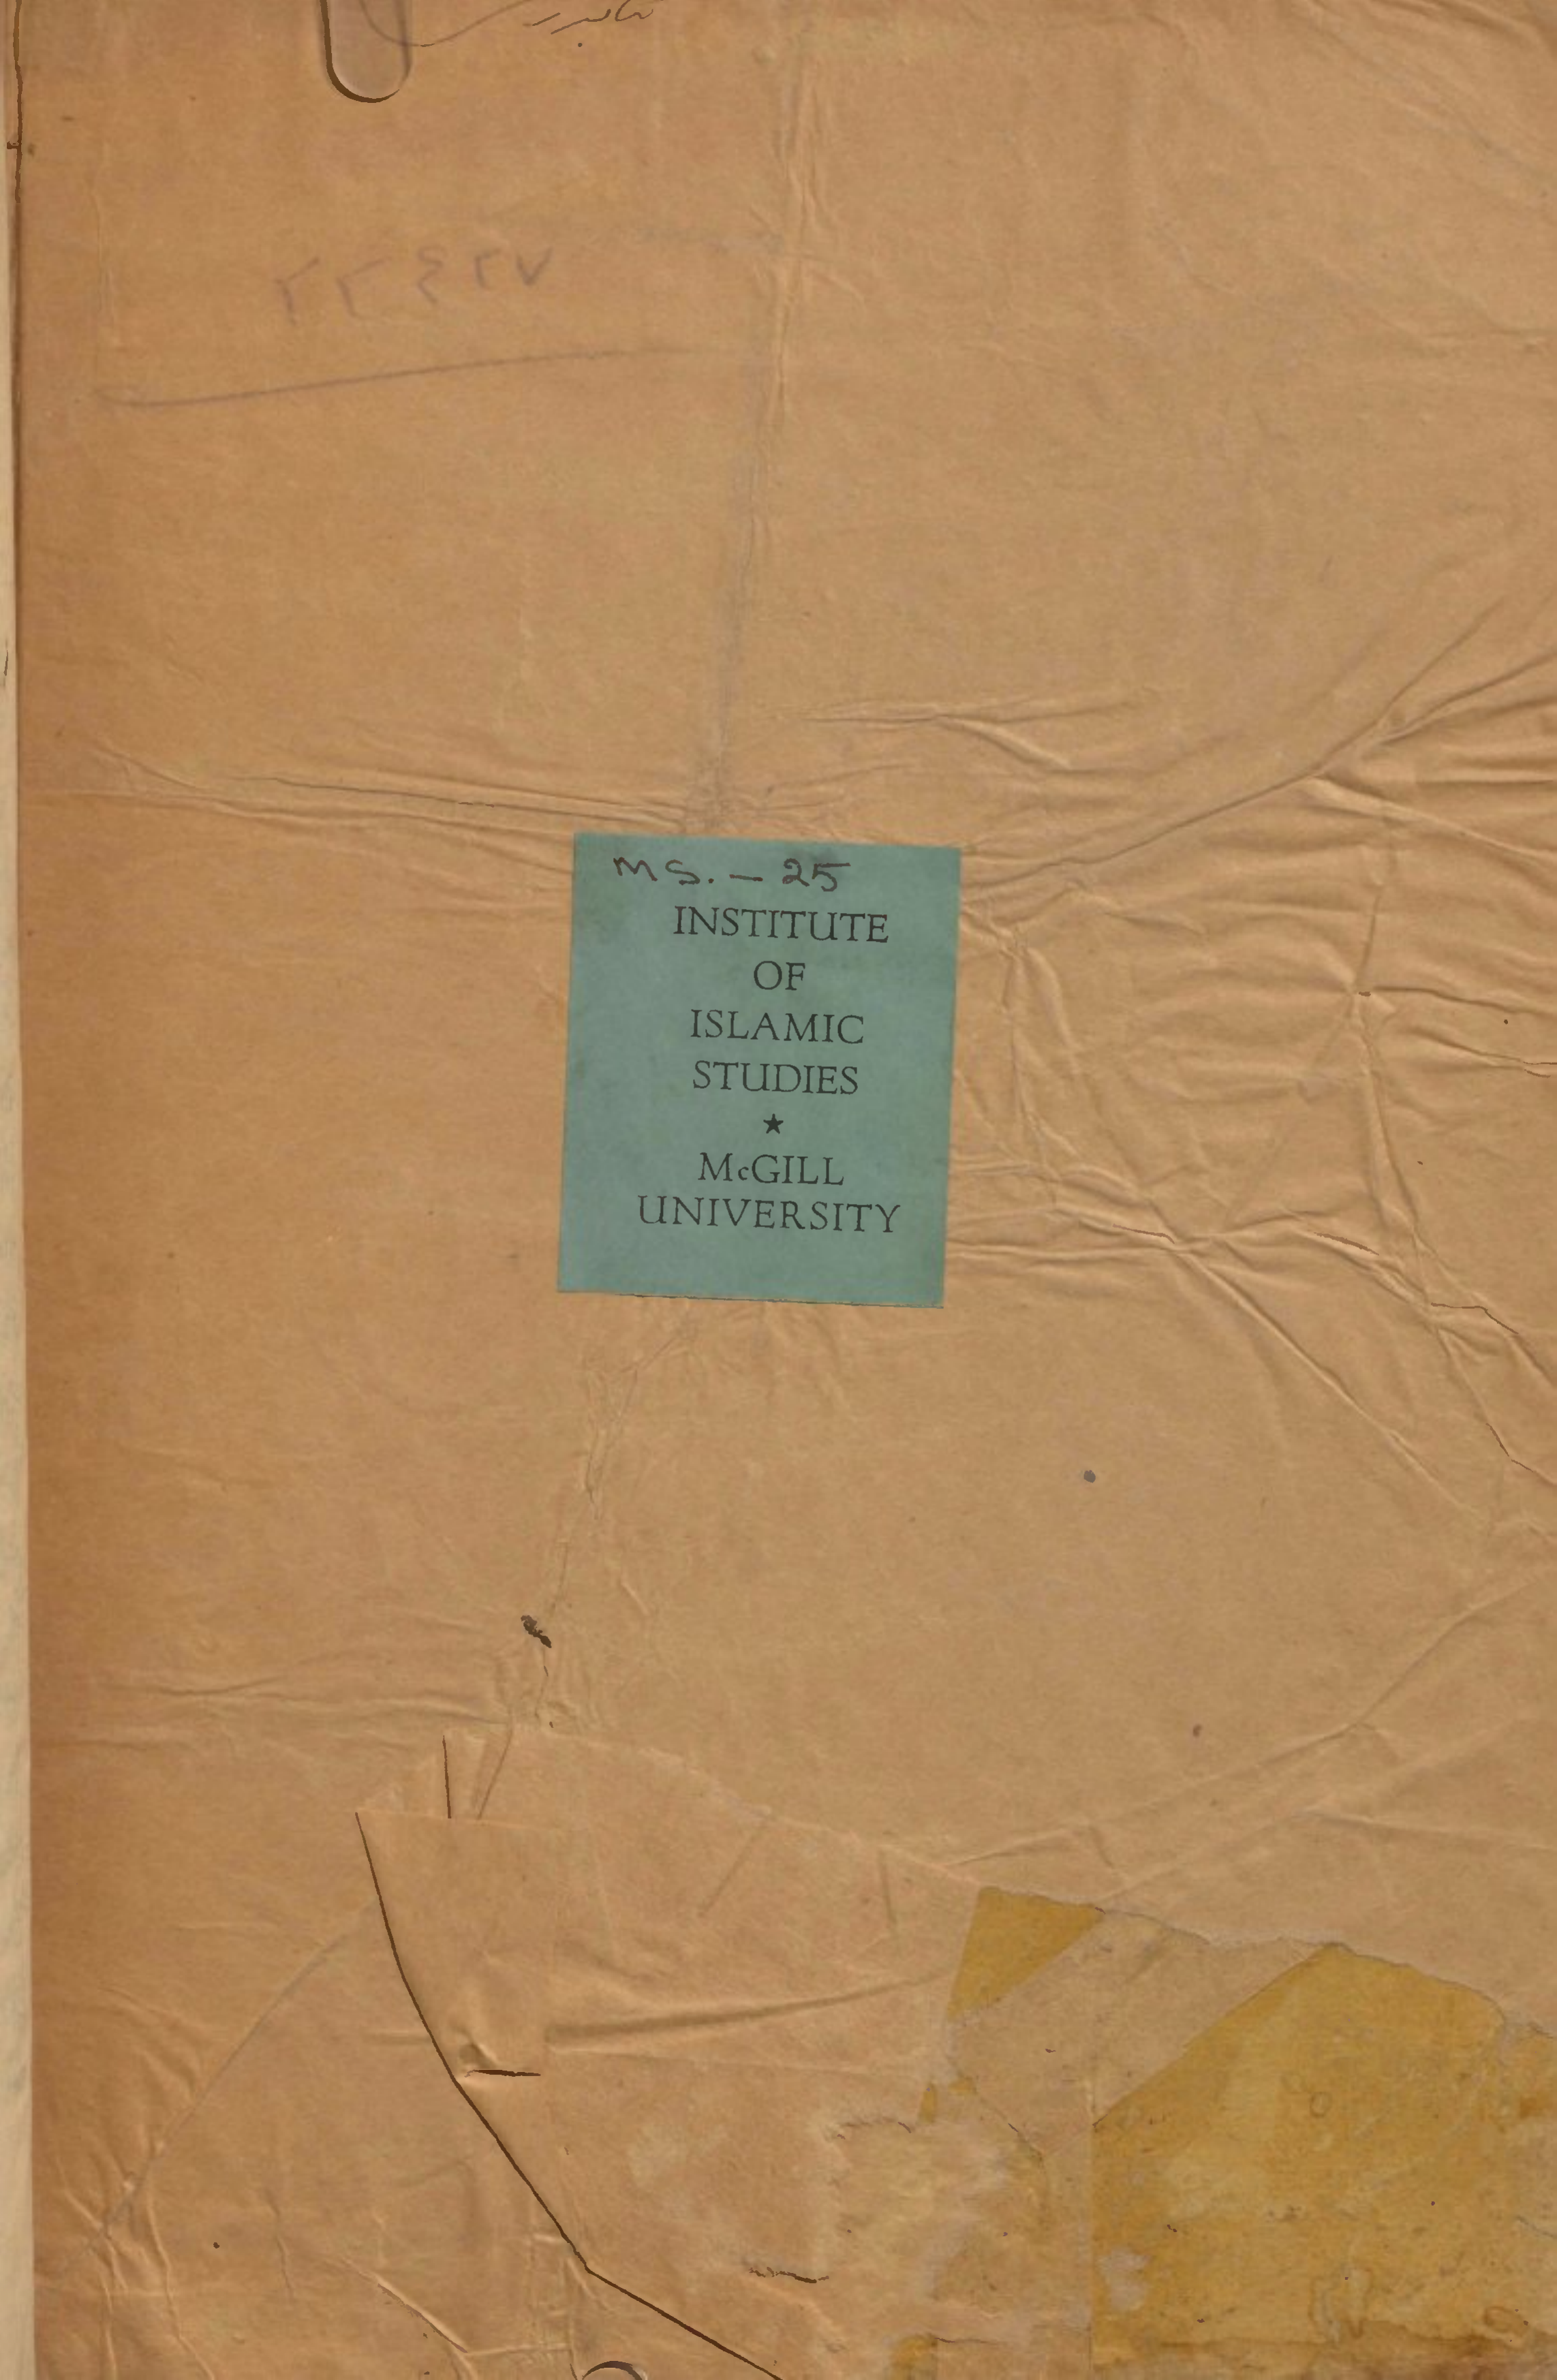 ٢٢٤٢٧
MS. — 25
INSTITUTE
OF
ISLAMIC
STUDIES
★
McGILL
UNIVERSITY